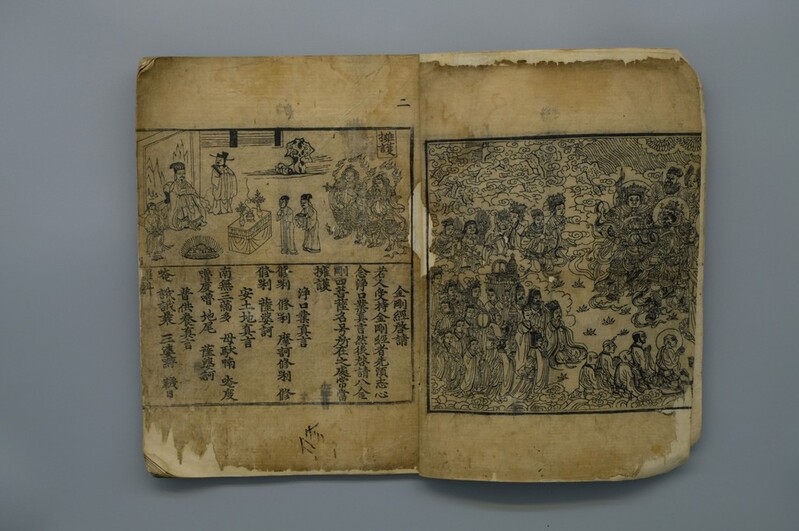 二
擁護
金剛經啓請
若人受持金剛經者先須志心
念淨口業真言然後啓請八金
剛四菩薩名号所在之處常當
擁護
淨口業真言
脩唎 脩唎 摩訶脩唎 脩
脩唎 薩婆訶
安土地真言
南無三滿多 母馱喃 唵度
嚕度嚕 地尾 薩婆訶
普供養真言
唵 誐誐曩 三婆嚩 韈日